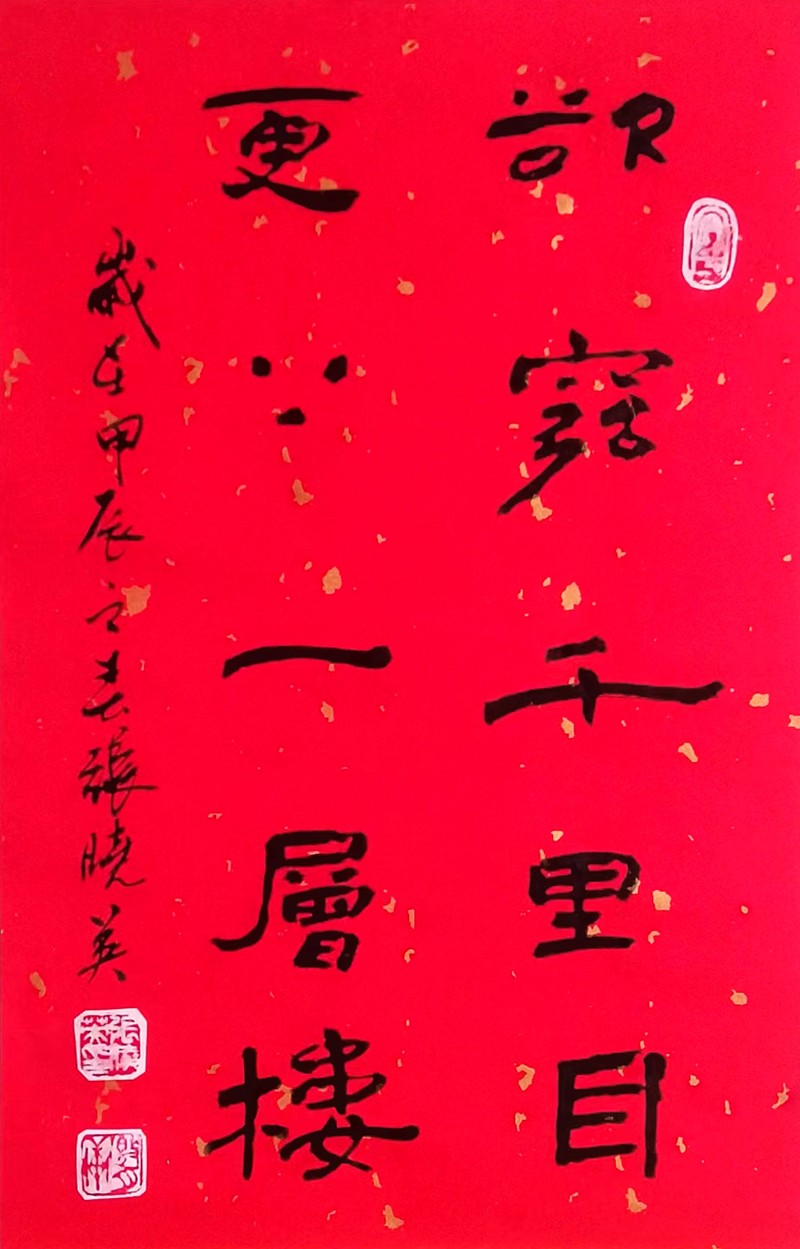 欲窮千里目
更上一層樓
歲在甲辰之春張曉英